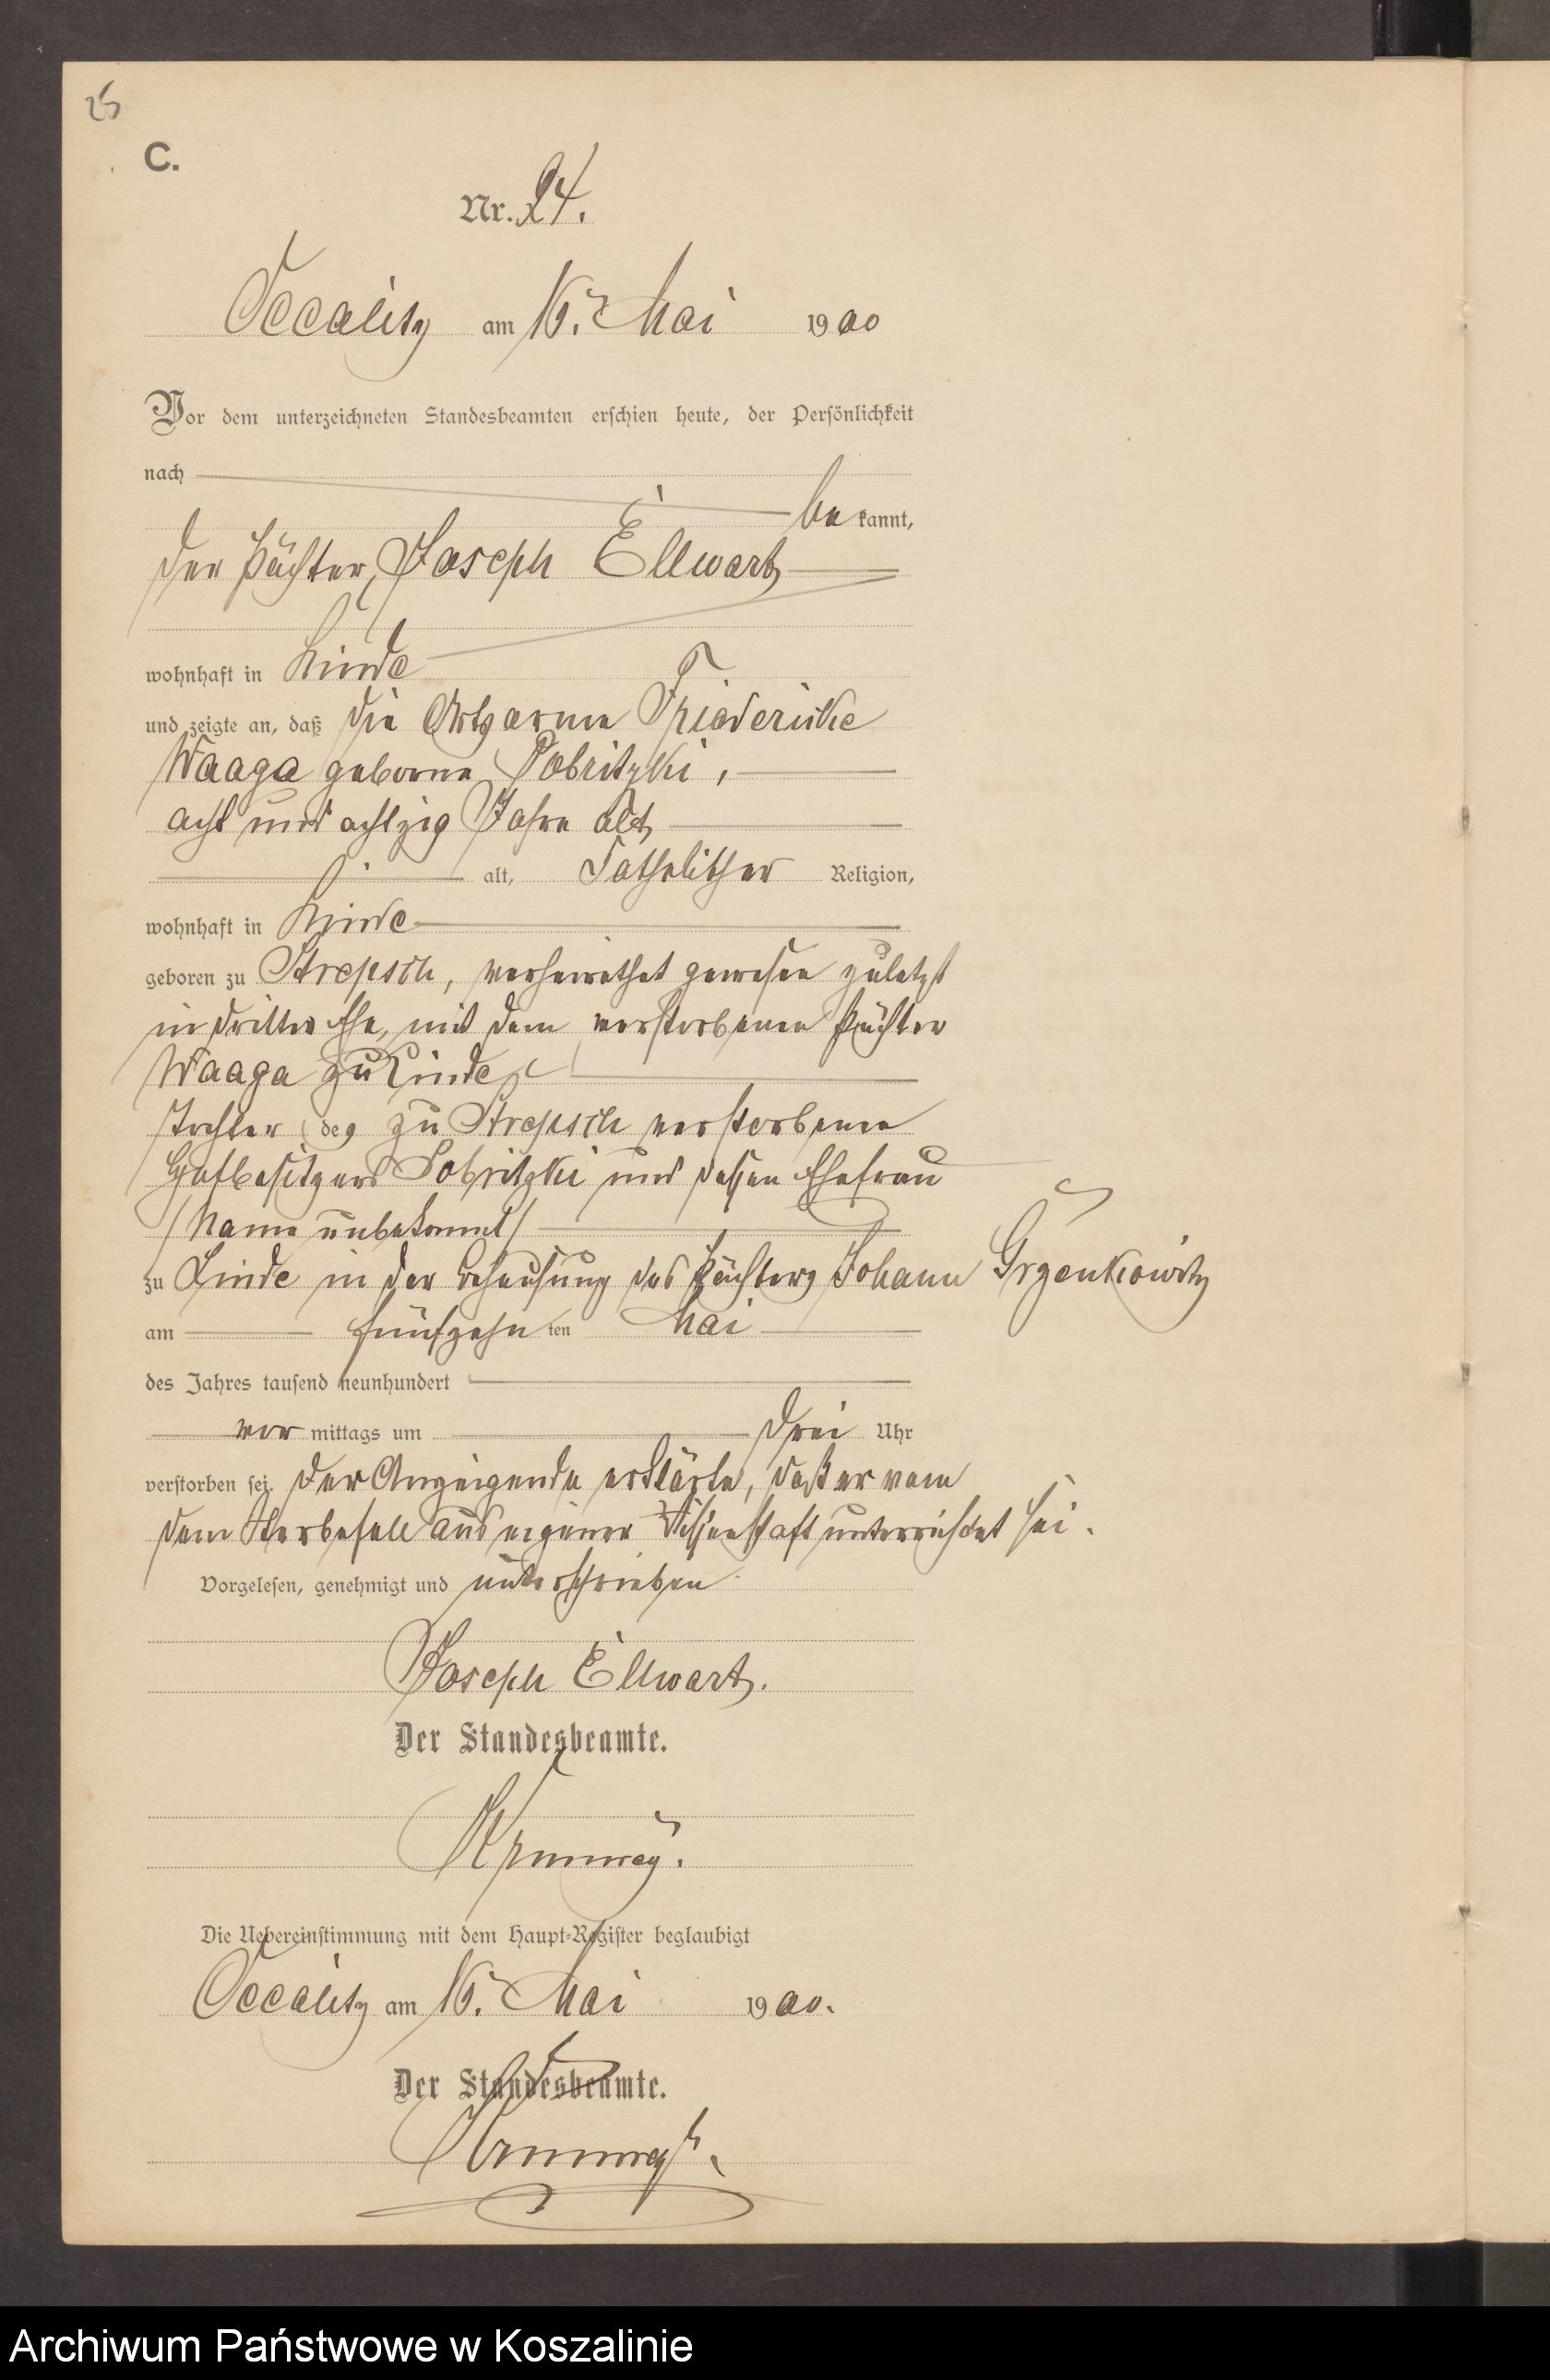 25
C.
Nr. 24.
Occalitz am 16. Mai 1900
Vor dem unterzeichneten Standesbeamten erschien heute, der Persönlichkeit
nach
be kannt,
der Pächter, Joseph Ellwart
wohnhaft in Linde
und zeigte an, daß die Ortsarme Friedericke
Waaga geborne Pobritzki,
acht und achtzig Jahre alt,
alt, katholischer Religion,
wohnhaft in Linde
geboren zu Strepsch, verheirathet gewesen zuletzt
in dritter Ehe, mit dem verstorbenen Pächter
Waaga zu Linde
Tochter des zu Strepsch verstorbenen
Hofbesitzers Pobritzki und dessen Ehefrau
/Name unbekannt/
zu Linde in der Behausung des Pächters Johann Grzenkowitz
am fünfzehn ten Mai
des Jahres tausend neunhundert
vor mittags um drei Uhr
verstorben sei. Der Anzeigende erklärte, daß er von
dem Sterbefall aus eigener Wissenschaft unterrichtet sei.
Vorgelesen, genehmigt und unterschrieben
Joseph Ellwart.
Der Standesbeamte.
Die Uebereinstimmung mit dem Haupt-Register beglaubigt
Occalitz am 16. Mai 1900.
Der Standesbeamte.
Archiwum Państwowe w Koszalinie